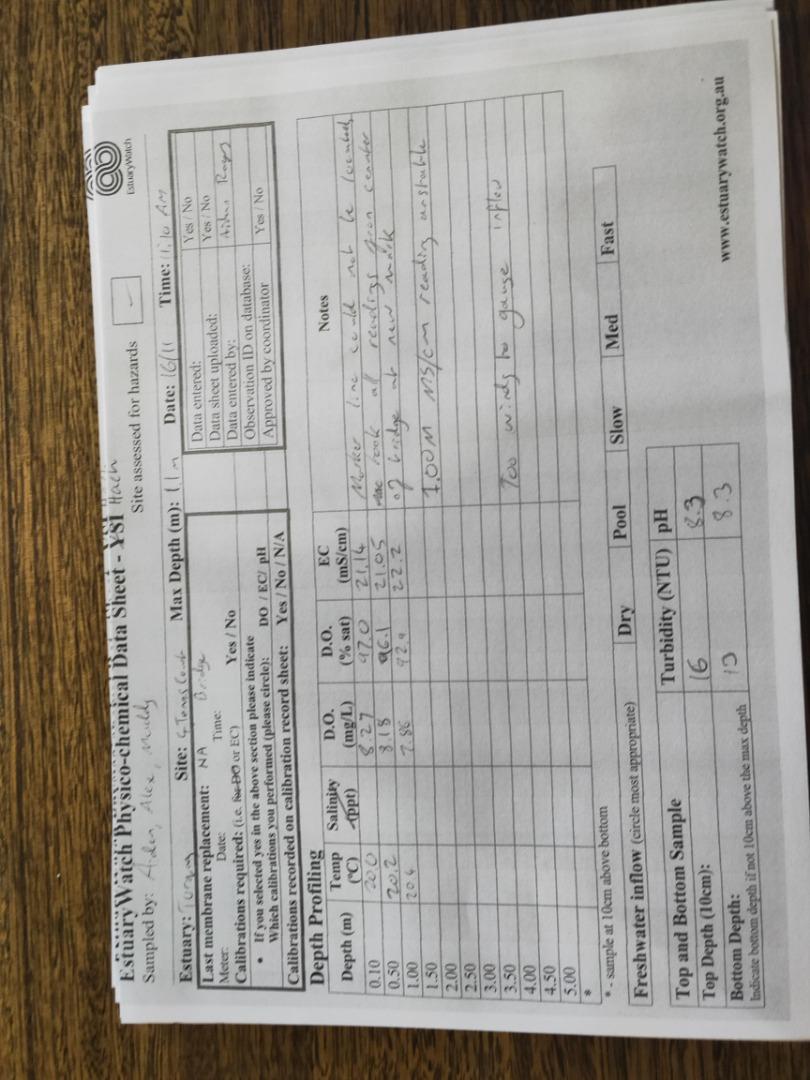 EstuaryWatch Physico-chemical Data Sheet - YSI Hach
EstuaryWatch
Sampled by: Aiden, Alex, Maddy
Site assessed for hazards -
Estuary: Site: Max Depth (m): 1.1 m Date: 16/11 Time: 11,10 AM
Last membrane replacement: NA Bridge
Meter: Date: Time:
Calibrations required: (i.e. for DO or EC) Yes / No
• If you selected yes in the above section please indicate
Which calibrations you performed (please circle): DO / EC/ pH
Calibrations recorded on calibration record sheet: Yes / No / N/A
Data entered: Yes / No
Data sheet uploaded: Yes / No
Data entered by: Aiden
Observation ID on database:
Approved by coordinator Yes / No
Depth Profiling
Depth (m) Temp (°C) Salinity (ppt) D.O. (mg/L) D.O. (% sat) EC (mS/cm) Notes
0.10 20.0 8.27 97.0 21,14 Marker line could not be located,
0.50 20.2 8.18 96.1 21,05 took all readings from center
1.00 20.4 7.86 92.9 22.2 of bridge at new mark
1.50 1.00M MS/cm reading unstable
2.00
2.50
3.00
3.50 Too windy to gauge inflow
4.00
4.50
5.00
*
*- sample at 10cm above bottom
Freshwater inflow (circle most appropriate) Dry Pool Slow Med Fast
Top and Bottom Sample Turbidity (NTU) pH
Top Depth (10cm): 16 8.3
Bottom Depth: 13 8.3
Indicate bottom depth if not 10cm above the max depth
www.estuarywatch.org.au